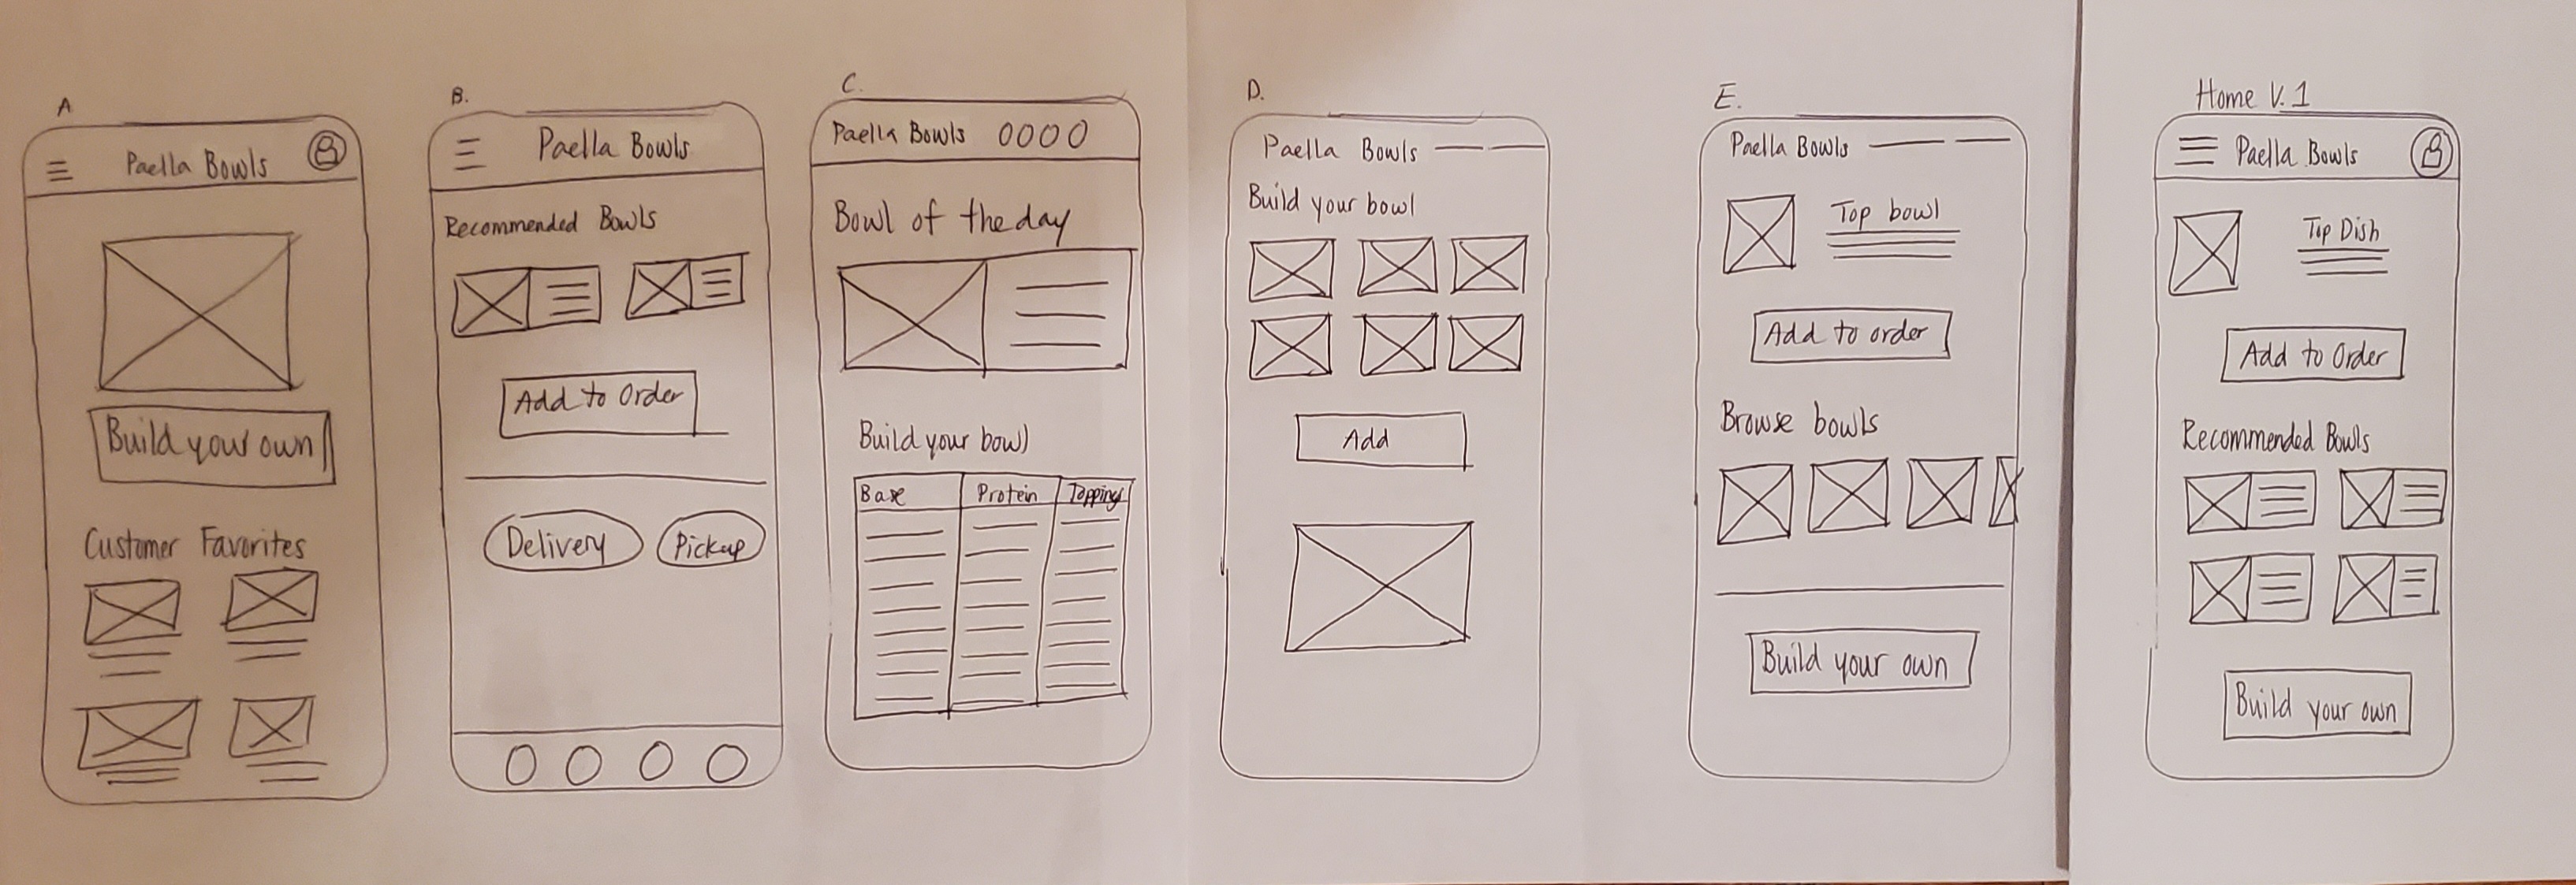 A
Paella Bowls
Build your own
Customer Favorites
B.
Paella Bowls
Recommended Bowls
Add to Order
Delivery
Pickup
C.
Paella Bowls
Bowl of the day
Build your bowl
Base Protein Topping
D.
Paella Bowls
Build your bowl
Add
E.
Paella Bowls
Top bowl
Add to order
Browse bowls
Build your own
Home V.1
Paella Bowls
Top Dish
Add to Order
Recommended Bowls
Build your own